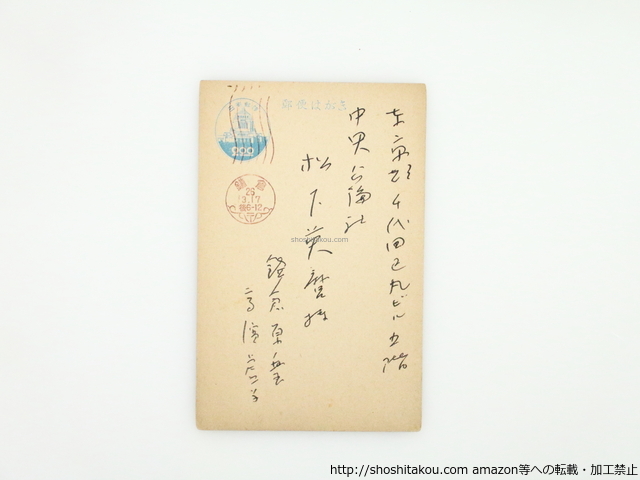 郵便はがき
東京都千代田区丸ビル五階
中央公論社
松下英麿様
鎌倉原ノ台
高濱虚子
鎌倉
26
3.17
後6-12
shoshitakou.com
http://shoshitakou.com amazon等への転載・加工禁止